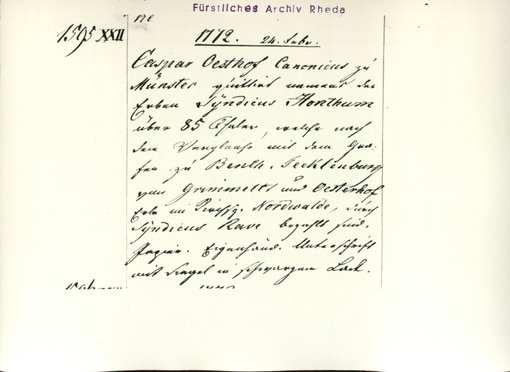 Fürstliches Archiv Rheda
1595 XXII
1772. 24. Febr.
Caspar Oesthof Canonicus zu
Münster quittirt namens der
Erben Syndicus Honthum
über 85 Thaler, welche nach
dem Vergleiche mit dem Gra-
fen zu Benth. Tecklenburg
von Grimmelts und Oesterhof
Erbe im Kirchsp. Nordwalde, durch
Syndicus Rave bezahlt sind.
Papier. Eigenhänd. Unterschrift
mit Siegel in schwarzem Lack.